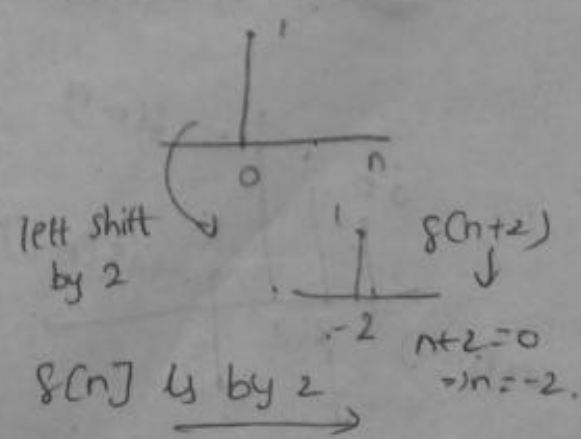 1
0 n
left shift
by 2
1 δ(n+2)
-2 n+2=0
⇒n=-2.
δ[n] LS by 2